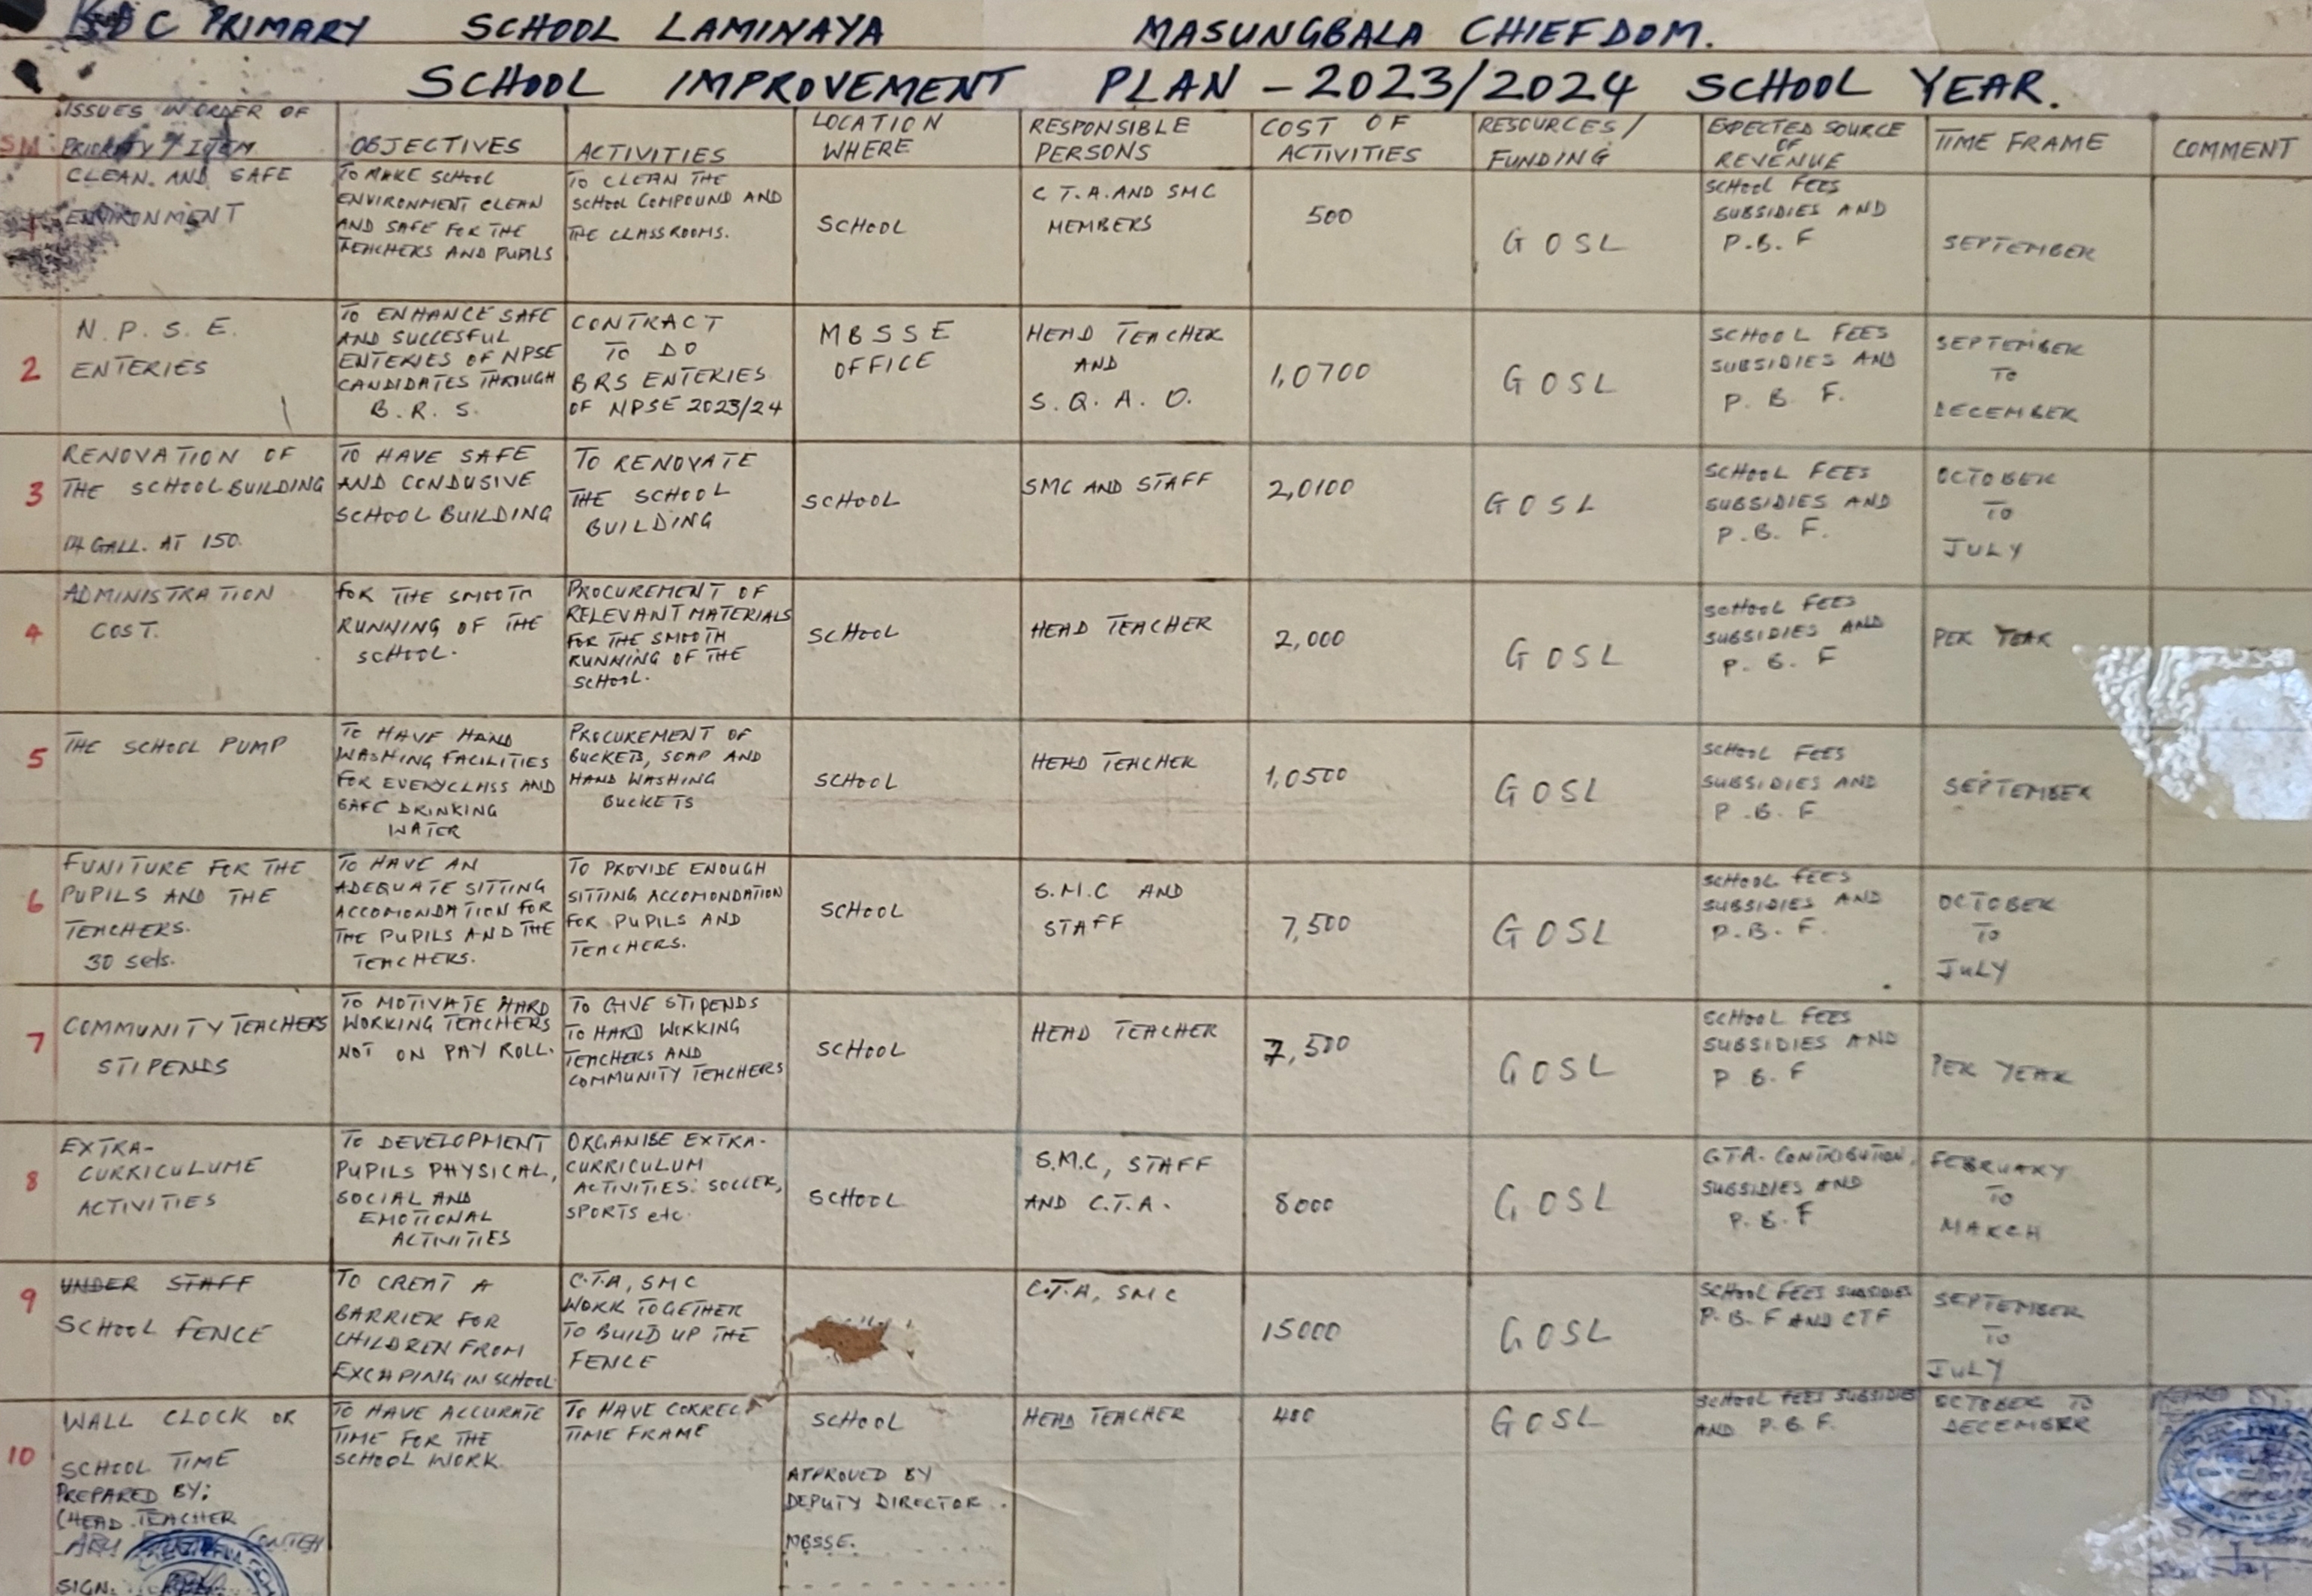 KDC PRIMARY SCHOOL LAMINAYA MASUNGBALA CHIEFDOM.
SCHOOL IMPROVEMENT PLAN - 2023/2024 SCHOOL YEAR.
SM
ISSUES IN ORDER OF
PRIORITY / ITEM
OBJECTIVES
ACTIVITIES
LOCATION
WHERE
RESPONSIBLE
PERSONS
COST OF
ACTIVITIES
RESOURCES/
FUNDING
EXPECTED SOURCE
OF
REVENUE
TIME FRAME
COMMENT
1
CLEAN. AND SAFE
ENVIRONMENT
TO MAKE SCHOOL
ENVIRONMENT CLEAN
AND SAFE FOR THE
TEACHERS AND PUPILS
TO CLEAN THE
SCHOOL COMPOUND AND
THE CLASSROOMS.
SCHOOL
C T.A. AND SMC
MEMBERS
500
GOSL
SCHOOL FEES
SUBSIDIES AND
P.B.F
SEPTEMBER
2
N.P.S.E.
ENTERIES
TO ENHANCE SAFE
AND SUCCESFUL
ENTERIES OF NPSE
CANDIDATES THROUGH
B.R.S.
CONTRACT
TO DO
BRS ENTERIES
OF NPSE 2023/24
MBSSE
OFFICE
HEAD TEACHER
AND
S.Q.A.O.
1,0700
GOSL
SCHOOL FEES
SUBSIDIES AND
P.B.F.
SEPTEMBER
TO
DECEMBER
3
RENOVATION OF
THE SCHOOL BUILDING
14 GALL. AT 150.
TO HAVE SAFE
AND CONDUSIVE
SCHOOL BUILDING
TO RENOVATE
THE SCHOOL
BUILDING
SCHOOL
SMC AND STAFF
2,0100
GOSL
SCHOOL FEES
SUBSIDIES AND
P.B.F.
OCTOBER
TO
JULY
4
ADMINISTRATION
COST.
FOR THE SMOOTH
RUNNING OF THE
SCHOOL.
PROCUREMENT OF
RELEVANT MATERIALS
FOR THE SMOOTH
RUNNING OF THE
SCHOOL.
SCHOOL
HEAD TEACHER
2,000
GOSL
SCHOOL FEES
SUBSIDIES AND
P.B.F
PER YEAR
5
THE SCHOOL PUMP
TO HAVE HAND
WASHING FACILITIES
FOR EVERYCLASS AND
SAFE DRINKING
WATER
PROCUREMENT OF
BUCKETS, SOAP AND
HAND WASHING
BUCKETS
SCHOOL
HEAD TEACHER
1,0500
GOSL
SCHOOL FEES
SUBSIDIES AND
P.B.F
SEPTEMBER
6
FUNITURE FOR THE
PUPILS AND THE
TEACHERS.
30 sets.
TO HAVE AN
ADEQUATE SITTING
ACCOMONDATION FOR
THE PUPILS AND THE
TEACHERS.
TO PROVIDE ENOUGH
SITTING ACCOMONDATION
FOR PUPILS AND
TEACHERS.
SCHOOL
S.M.C AND
STAFF
7,500
GOSL
SCHOOL FEES
SUBSIDIES AND
P.B.F.
OCTOBER
TO
JULY
7
COMMUNITY TEACHERS
STIPENDS
TO MOTIVATE HARD
WORKING TEACHERS
NOT ON PAY ROLL.
TO GIVE STIPENDS
TO HARD WORKING
TEACHERS AND
COMMUNITY TEACHERS
SCHOOL
HEAD TEACHER
7,500
GOSL
SCHOOL FEES
SUBSIDIES AND
P B.F
PER YEAR
8
EXTRA-
CURRICULUME
ACTIVITIES
TO DEVELOPMENT
PUPILS PHYSICAL,
SOCIAL AND
EMOTIONAL
ACTIVITIES
ORGANISE EXTRA-
CURRICULUM
ACTIVITIES: SOCCER,
SPORTS etc.
SCHOOL
S.M.C, STAFF
AND C.T.A.
8000
GOSL
C.T.A. CONTRIBUTION,
SUBSIDIES AND
P.B.F
FEBRUARY
TO
MARCH
9
UNDER STAFF
SCHOOL FENCE
TO CREAT A
BARRIER FOR
CHILDREN FROM
EXCAPING IN SCHOOL
C.T.A, SMC
WORK TOGETHER
TO BUILD UP THE
FENCE
C.T.A, SMC
15000
GOSL
SCHOOL FEES SUBSIDIES
P.B.F AND CTF
SEPTEMBER
TO
JULY
10
WALL CLOCK OR
SCHOOL TIME
TO HAVE ACCURATE
TIME FOR THE
SCHOOL WORK.
TO HAVE CORRECT
TIME FRAME
SCHOOL
HEAD TEACHER
400
GOSL
SCHOOL FEES SUBSIDIE
AND P.B.F.
OCTOBER TO
DECEMBER
PREPARED BY:
(HEAD TEACHER
CONTEH
SIGN:
APPROVED BY
DEPUTY DIRECTOR..
MBSSE.